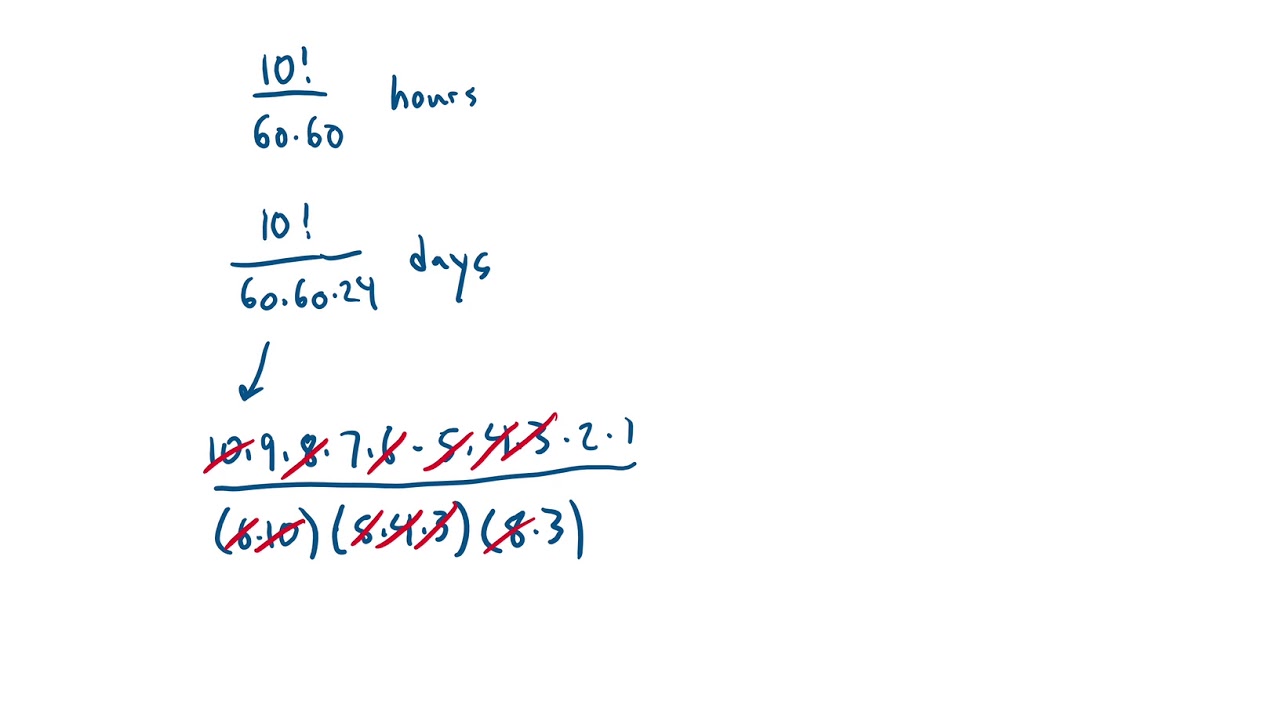 10!
60·60
hours
10!
60·60·24
days
10·9·8·7·6·5·4·3·2·1
(6·10)(5·4·3)(8·3)